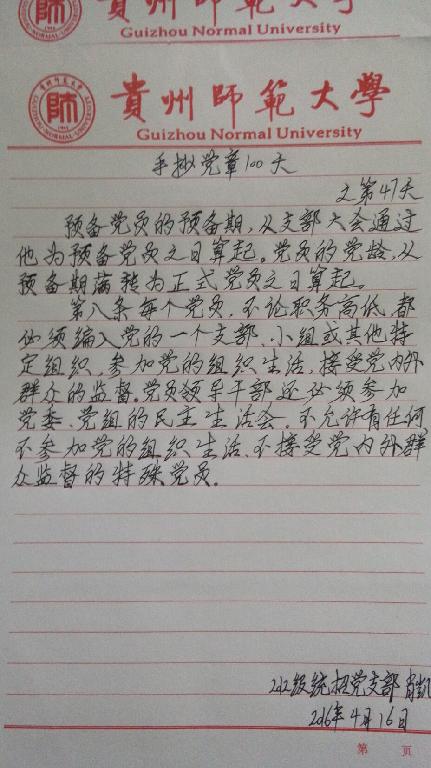 貴州師範大學
Guizhou Normal University
師
貴州師範大學
Guizhou Normal University
手抄党章100天
之第47天
预备党员的预备期,从支部大会通过
他为预备党员之日算起。党员的党龄,从
预备期满转为正式党员之日算起。
第八条每个党员,不论职务高低,都
必须编入党的一个支部、小组或其他特
定组织,参加党的组织生活,接受党内外
群众的监督。党员领导干部还必须参加
党委、党组的民主生活会。不允许有任何
不参加党的组织生活、不接受党内外群
众监督的特殊党员。
2012级统招党支部 肖凯
2016年4月16日
第 页